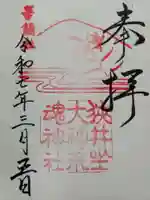 奉拝
狭井坐
大神荒
魂神社
令和七年三月吉日